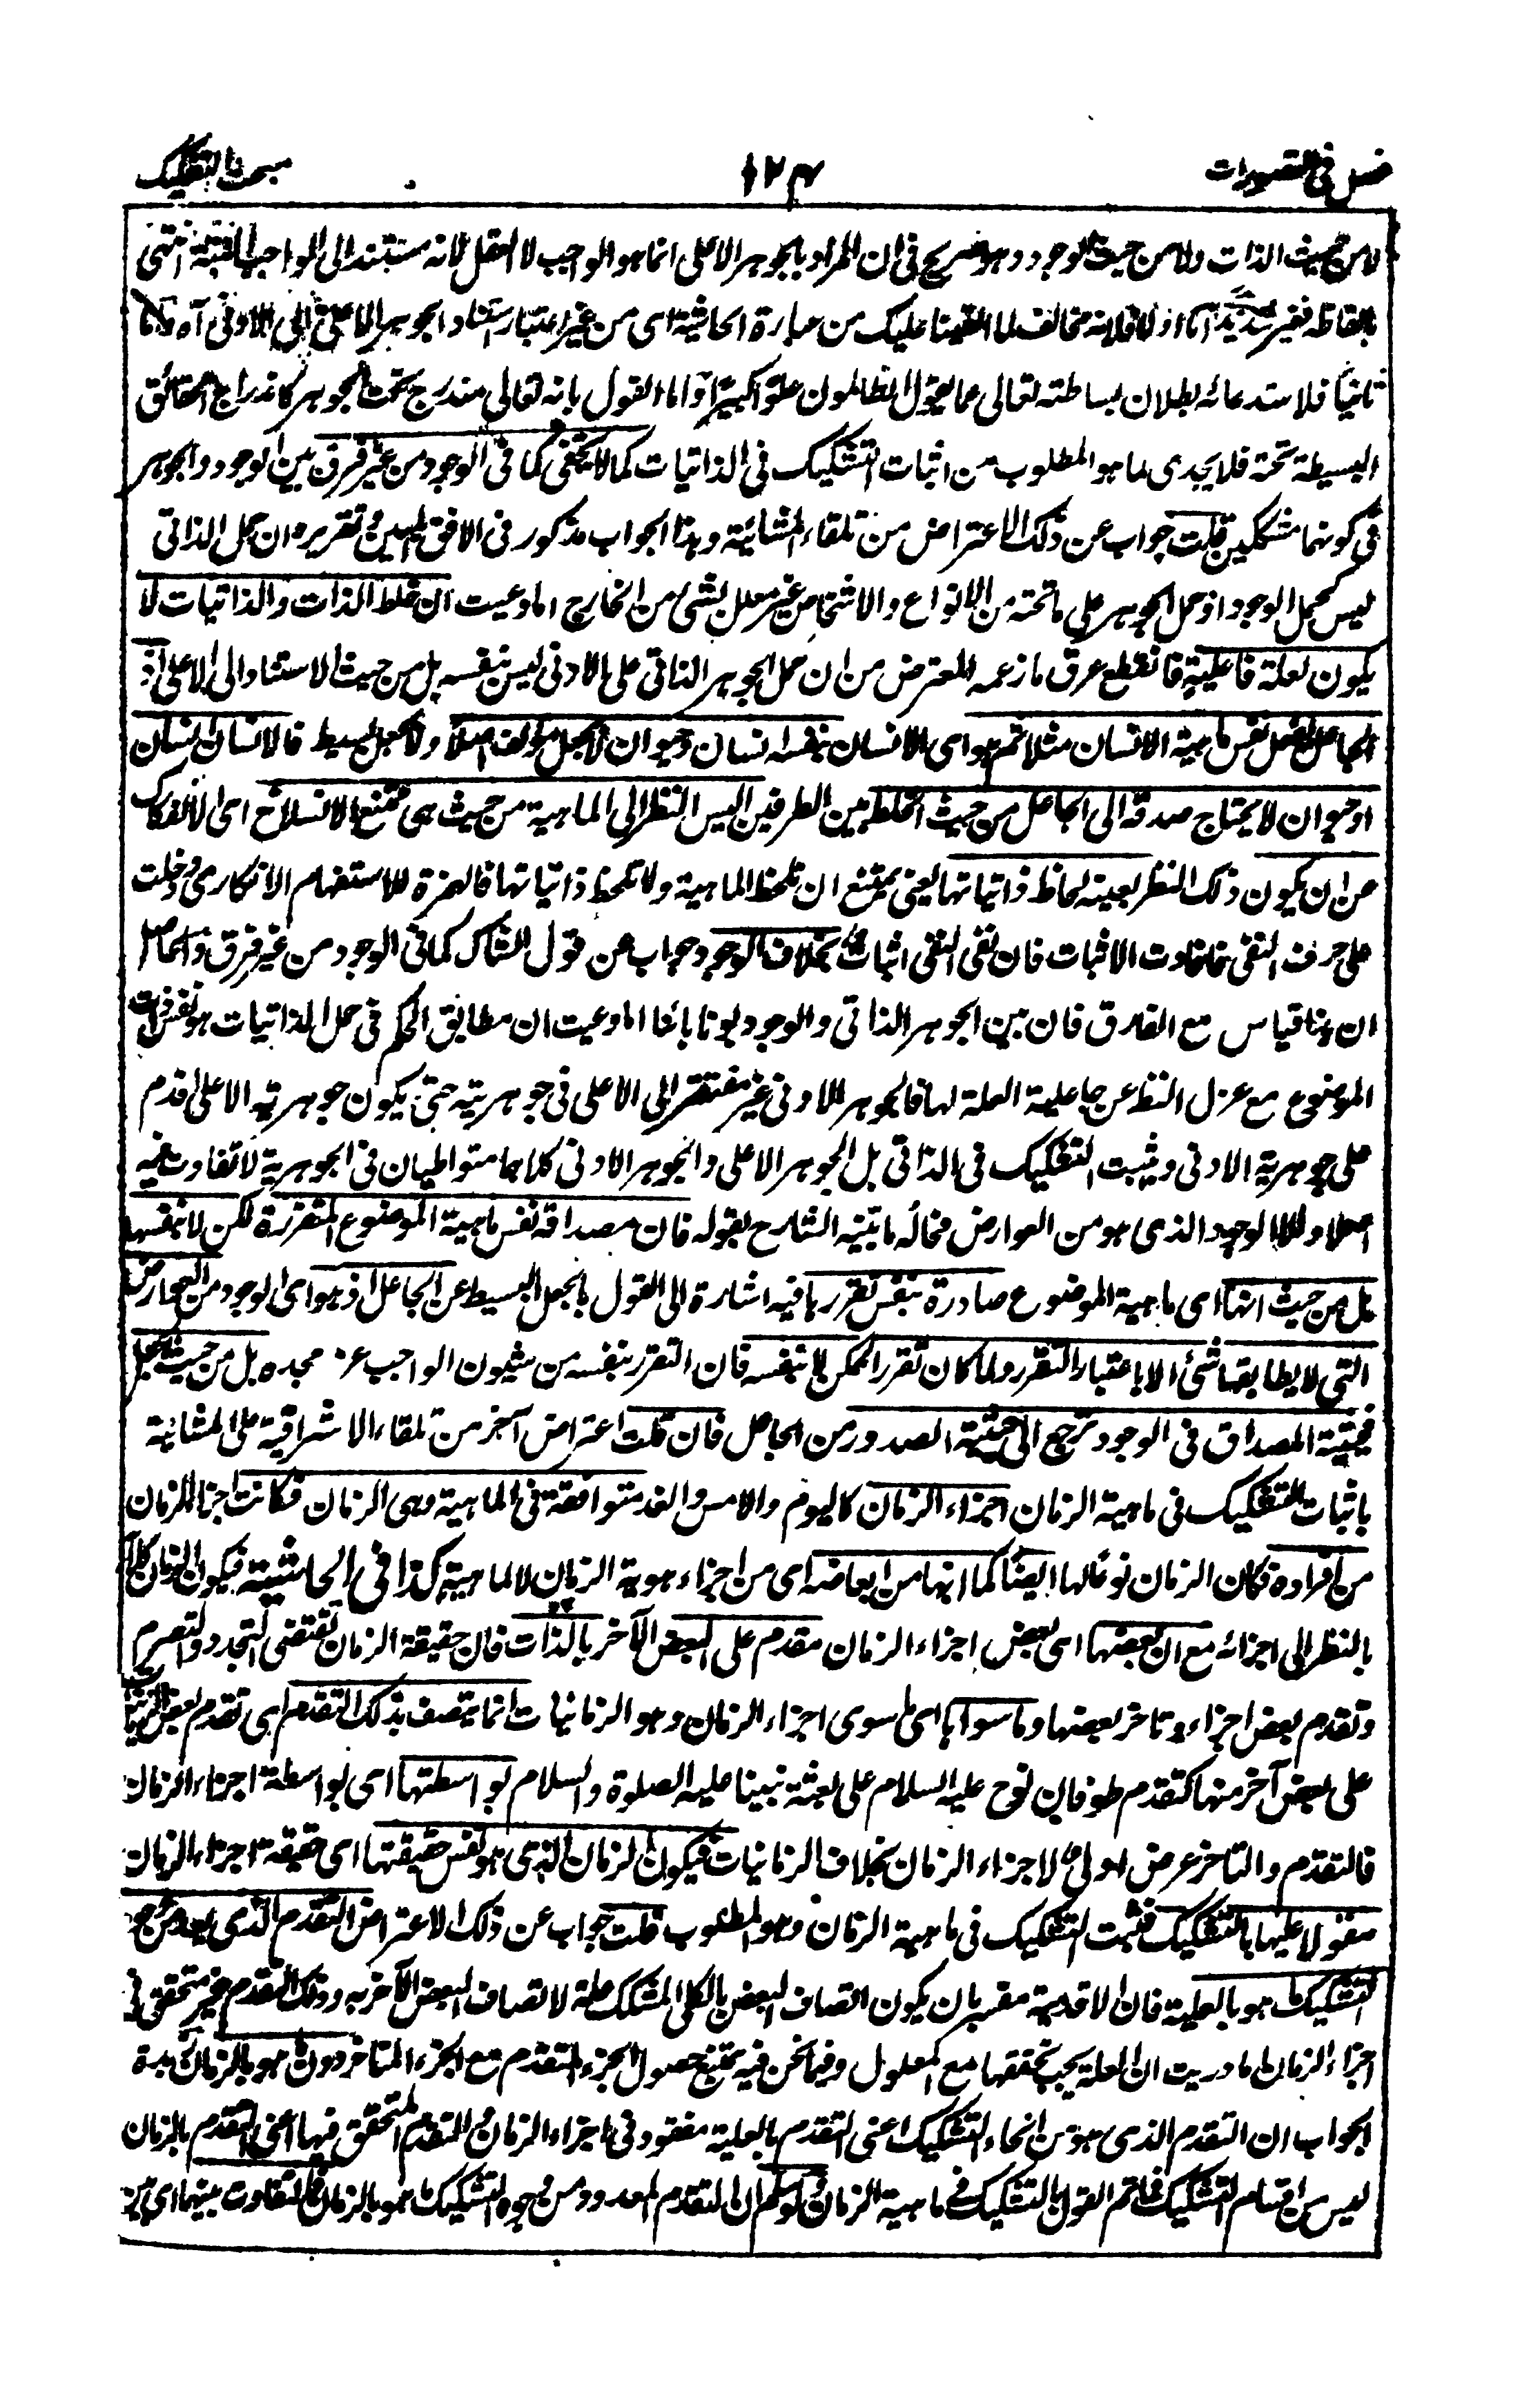 فصل فی التصورات ١٢٤ مبحث التشکیک
لا من حیث الذات ولا من حیث الوجود وهو صریح فی ان المراد بالجوهر الاعلی انما هو الواجب لا العقل لانه مستند الی الواجب البتة انتهی
بالفاظه ففیر سدید اما اولا فلانه مخالف لما القینا علیک من عبارة الحاشیة ای من غیر اعتبار استناد الجوهر الاعلی الی الادنی آه واما
ثانیا فلاستدعائه بطلان بساطته تعالی عما یقول الظالمون علوا کبیرا واما القول بانه تعالی مندرج تحت الجوهر کاندراج الحقائق
البسیطة تحته فلا یجدی لما هو المطلوب من اثبات التشکیک فی الذاتیات کما لا یخفی کما فی الوجود من غیر فرق بین الوجود والجوهر
فی کونهما مشککین قلت جواب عن ذلک الاعتراض من تلقاء المشائیة وهذا الجواب مذکور فی الافق المبین وتقریره ان حمل الذاتی
لیس کحمل الوجود اذ حمل الجوهر علی ما تحته من الانواع والاشخاص غیر معلل بشئ من الخارج اما وعیت ان خلط الذات والذاتیات لا
یکون لعلة فاعلیة فانقطع عرق ما زعمه المعترض من ان حمل الجوهر الذاتی علی الادنی لیس بنفسه بل من حیث الاستناد الی الاعلی اذ
الجاعل یفعل نفس ماهیة الانسان مثلا ثم هو ای الانسان بنفسه انسان وحیوان لا بجعل مؤلف اصلا ولا بجعل بسیط فالانسان انسان
او حیوان لا یحتاج صدقه الی الجاعل من حیث الخلط بین الطرفین الیس النظر الی الماهیة من حیث هی ممتنع الانسلاخ ای الانفکاک
من ان یکون ذلک النظر بعینه لحاظ ذاتیاتها یعنی یمتنع ان تلحظ الماهیة ولا تلحظ ذاتیاتها فالهمزة للاستفهام الانکاری ودخلت
علی حرف النفی فافادت الاثبات فان نفی النفی اثبات بخلاف الوجود جواب عن قول الشاک کما فی الوجود من غیر فرق والحاصل
ان هذا قیاس مع الفارق فان بین الجوهر الذاتی والوجود بونا بائنا اما وعیت ان مطابق الحکم فی حمل الذاتیات هو نفس ذات
الموضوع مع عزل النظر عن جاعلیة العلة لها فالجوهر للادنی غیر مفتقر الی الاعلی فی جوهریته حتی یکون جوهریة الاعلی اقدم
علی جوهریة الادنی ویثبت التشکیک فی الذاتی بل الجوهر الاعلی والجوهر الادنی کلاهما متواطیان فی الجوهریة لا تفاوت فیه
اصلا واما الوجود الذی هو من العوارض فحاله ما بینه الشارح بقوله فان مصداقه نفس ماهیة الموضوع المتقررة لکن لا بنفسها
بل من حیث انها ای ماهیة الموضوع صادرة بنفس تقررها فیه اشارة الی القول بالجعل البسیط عن الجاعل اذ هو ای الوجود من العوارض
التی لا یطابقها شئ الا باعتبار التقرر ولما کان تقرر الممکن لا بنفسه فان التقرر بنفسه من شیون الواجب عز مجده بل من حیث الجعل
فحیثیة المصداق فی الوجود ترجع الی حیثیة الصدور من الجاعل فان قلت اعتراض آخر من تلقاء الاشراقیة علی المشائیة
باثبات التشکیک فی ماهیة الزمان اجزاء الزمان کالیوم والامس والغد متوافقة فی الماهیة وهی الزمان فکانت اجزاء الزمان
من افراده فکان الزمان نوعا لها ایضا کما انها من ابعاضه ای من اجزاء هویة الزمان لا لماهیة کذا فی الحاشیة فیکون الزمان کلیا
بالنظر الی اجزائه مع ان بعضها ای بعض اجزاء الزمان مقدم علی البعض الآخر بالذات فان حقیقة الزمان تقتضی التجدد والتصرم
وتقدم بعض اجزائه وتاخر بعضها وما سواها ای سوی اجزاء الزمان وهو الزمانیات انما یتصف بذلک التقدم ای تقدم بعض الزمانیات
علی بعض آخر منها کتقدم طوفان نوح علیه السلام علی بعثة نبینا علیه الصلوة والسلام بواسطتها ای بواسطة اجزاء الزمان
فالتقدم والتاخر عرض اولی لاجزاء الزمان بخلاف الزمانیات فیکون الزمان الذی هو نفس حقیقتها ای حقیقة اجزاء الزمان
مقولا علیها بالتشکیک فثبت التشکیک فی ماهیة الزمان وهو المطلوب قلت جواب عن ذلک الاعتراض التقدم الذی یعد من وجوه
التشکیک ما هو بالعلیة فان الاقدمیة مفسر بان یکون اتصاف البعض بالکلی المشکک علة لاتصاف البعض الآخر به وذلک التقدم غیر متحقق فی
اجزاء الزمان لما دریت ان العلة یجب تحققها مع المعلول وفیما نحن فیه یمتنع حصول الجزء المتقدم مع الجزء المتاخر دون ما هو بالزمان زبدة
الجواب ان التقدم الذی هو من انحاء التشکیک اعنی التقدم بالعلیة مفقود فی اجزاء الزمان والتقدم المتحقق فیها اعنی التقدم بالزمان
لیس من اقسام التشکیک فما تم القول بالتشکیک فی ماهیة الزمان ولو سلم ان التقدم المعدود من وجوه التشکیک ما هو بالزمان فالتفاوت بینهما ای بین